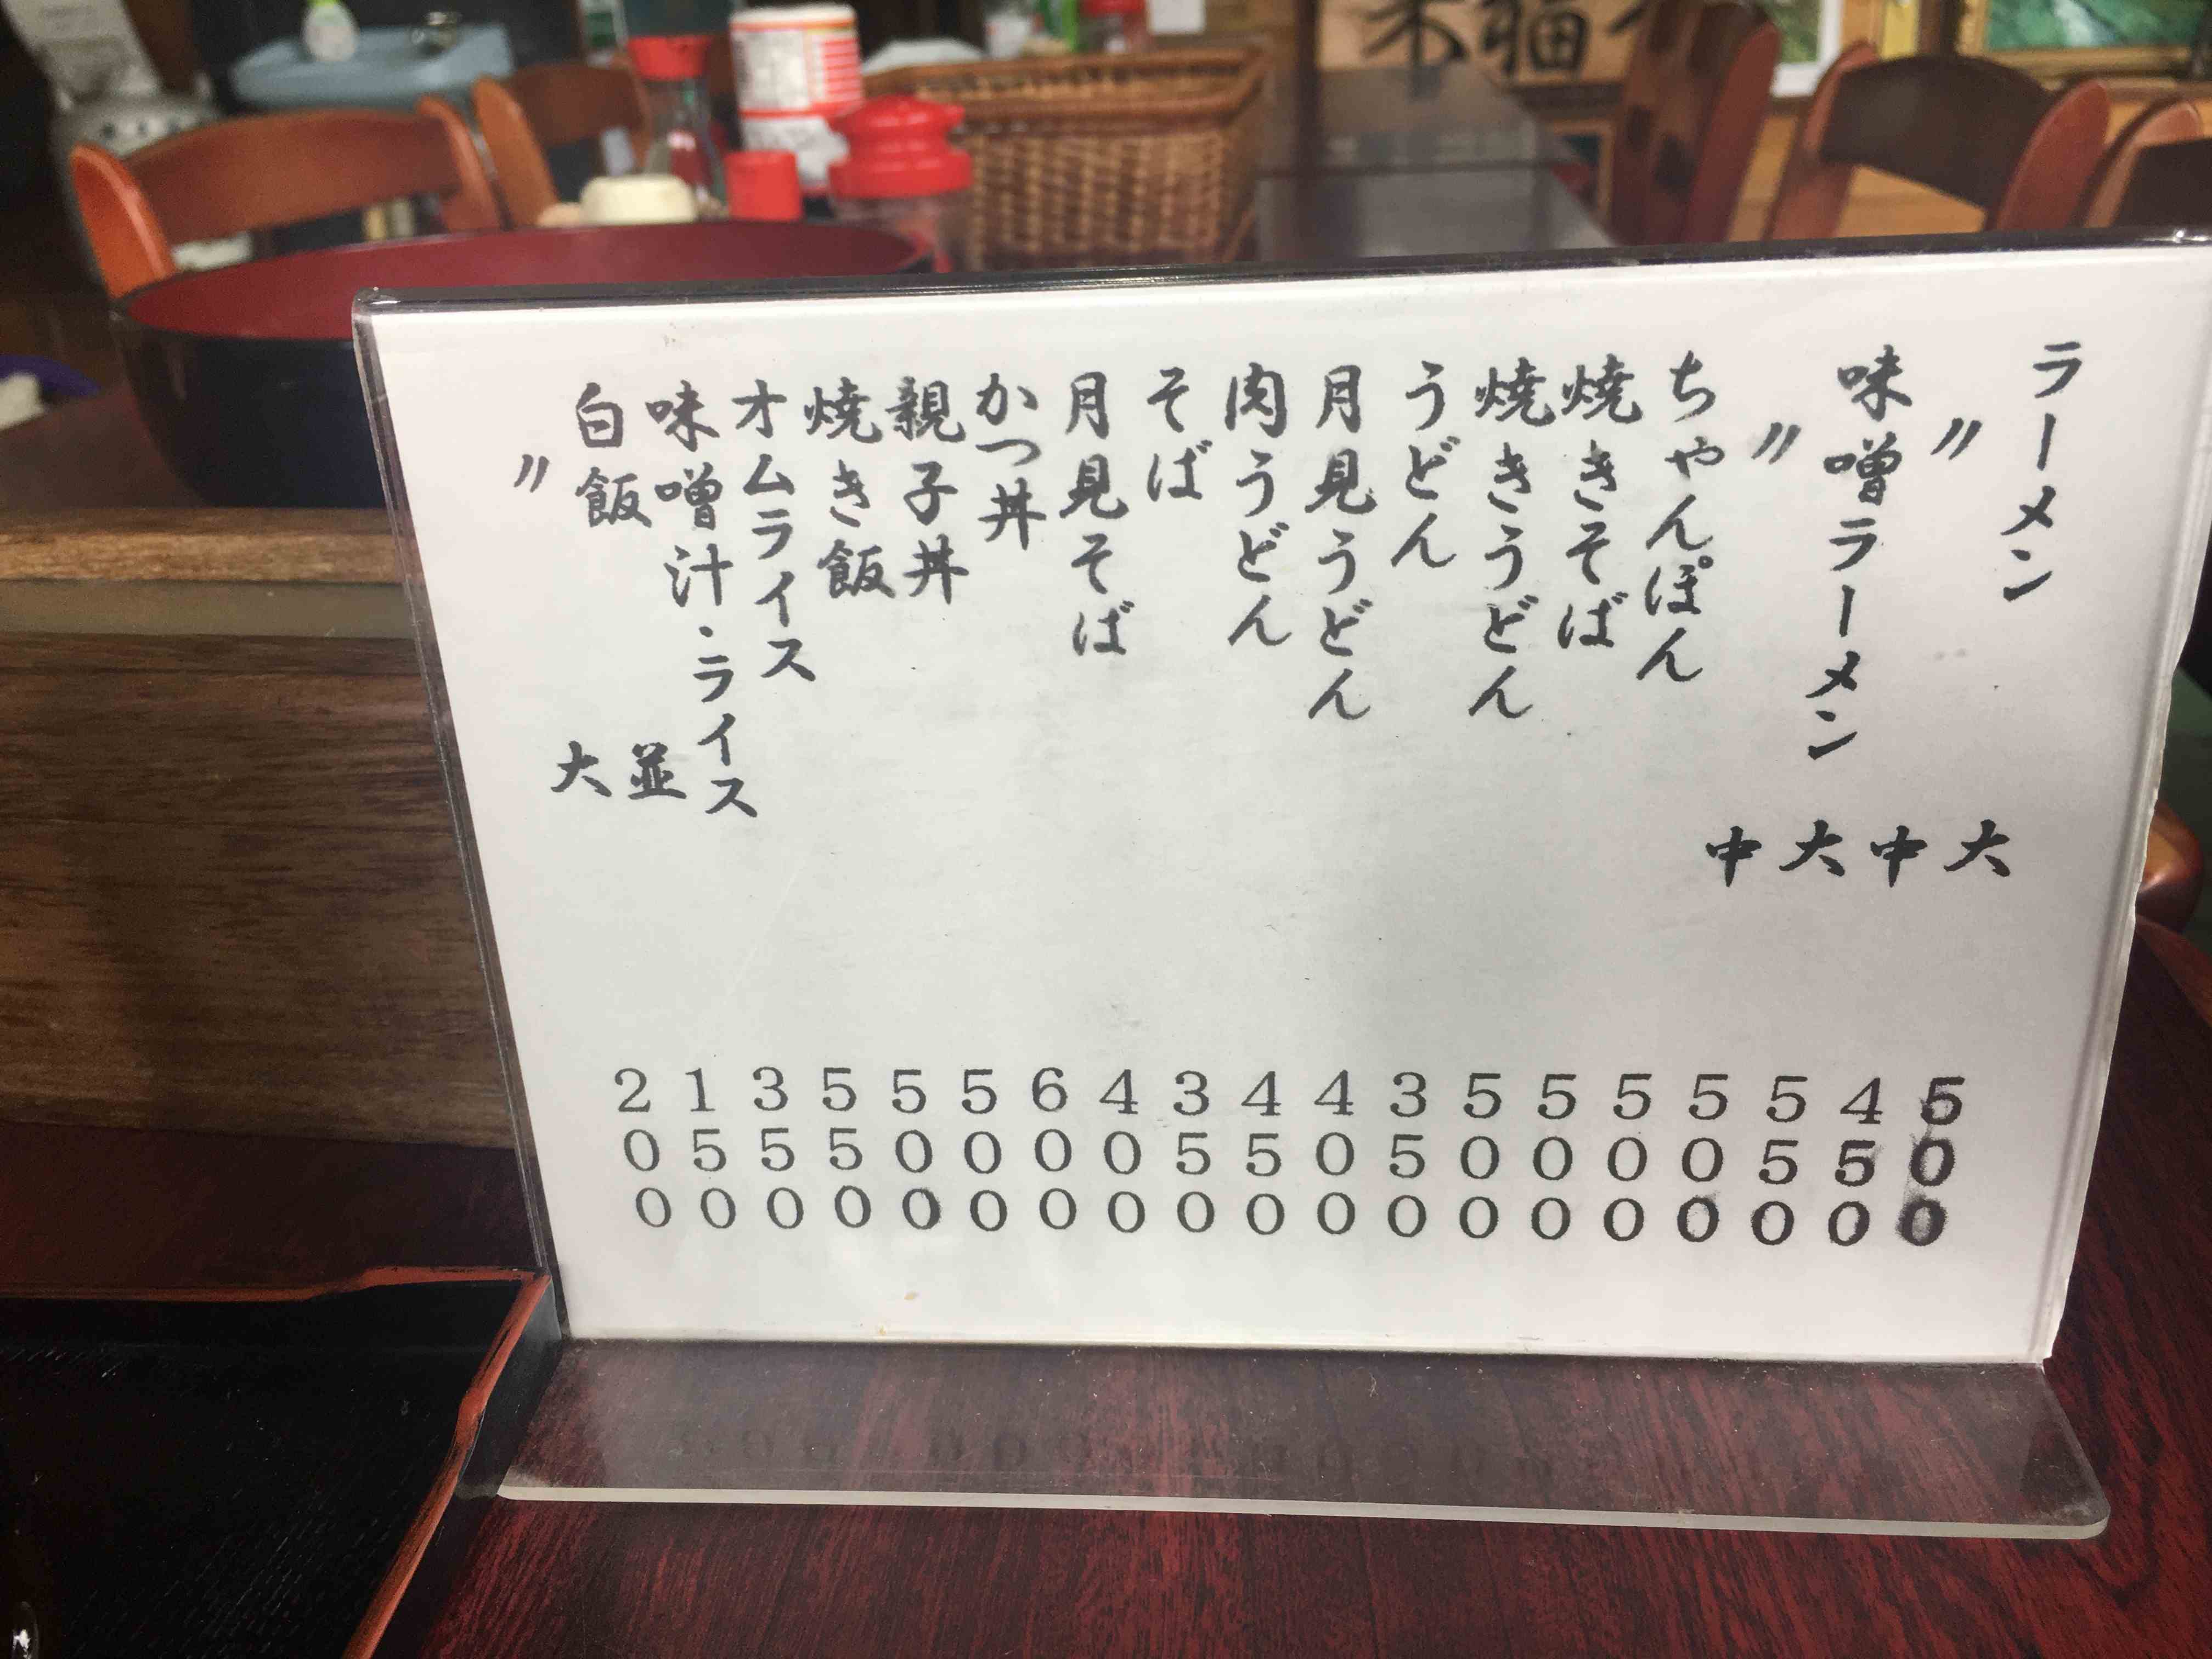 ラーメン 大 500
〃 中 450
味噌ラーメン 大 550
〃 中 500
ちゃんぽん 500
焼きそば 500
焼きうどん 500
うどん 350
月見うどん 400
肉うどん 450
そば 350
月見そば 400
かつ丼 600
親子丼 500
焼き飯 500
オムライス 550
味噌汁・ライス 350
白飯 並 150
〃 大 200